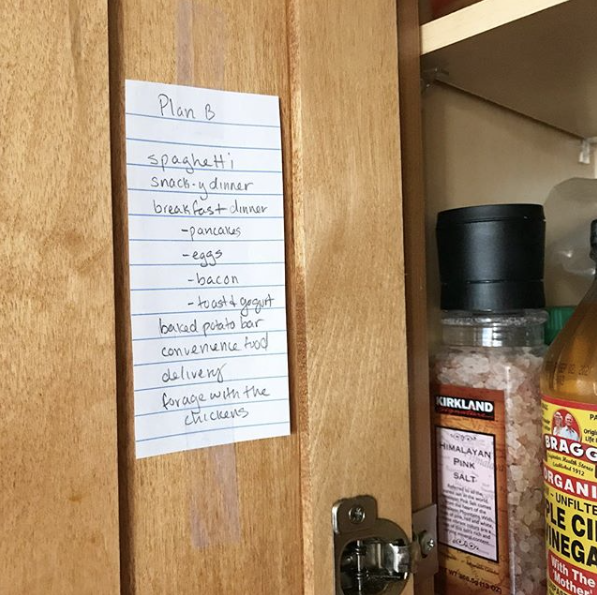 Plan B
spaghetti
snack-y dinner
breakfast dinner
-pancakes
-eggs
-bacon
-toast & yogurt
baked potato bar
convenience food
delivery
forage with the
chickens
KIRKLAND
HIMALAYAN
PINK
SALT
BRAGG
Established 1912
ORGANI
UNFILTE
PLE CI
INEGA
With The
'Mother'